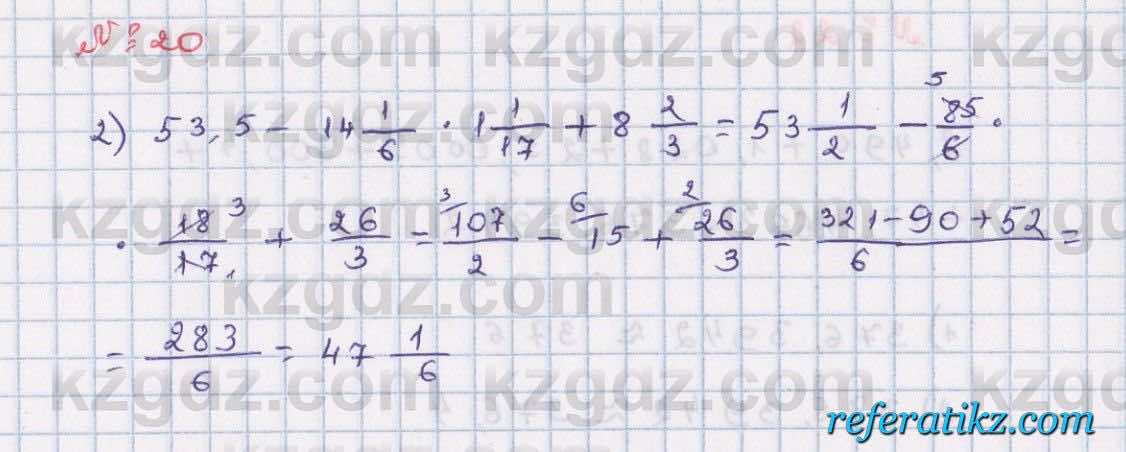 № 20
2) 53,5 - 14 1/6 · 1 1/17 + 8 2/3 = 53 1/2 - 85/6 ·
5
· 18/17 + 26/3 = 107/2 - 15 + 26/3 = (321 - 90 + 52)/6 =
3 1 3 6 2
= 283/6 = 47 1/6
kzgdz.com
referatikz.com